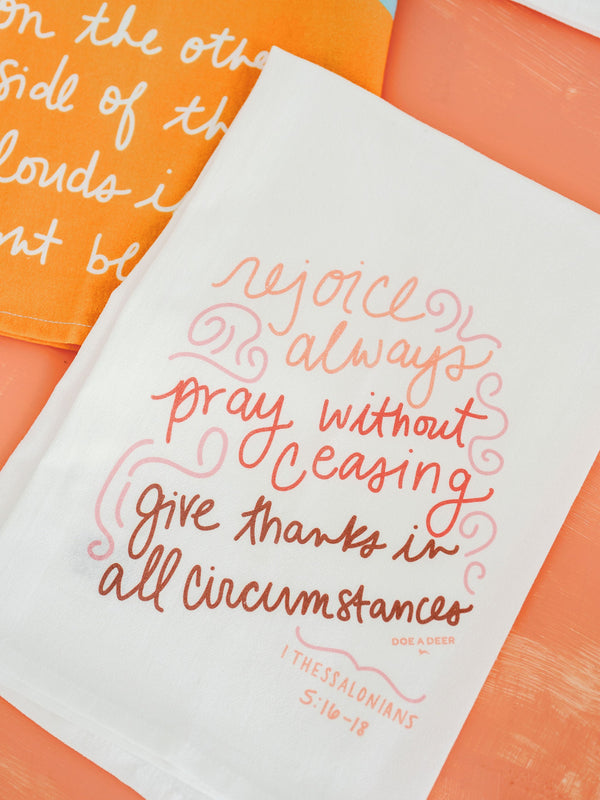 on the othe
side of th
louds i
ht be
rejoice
always
pray without
ceasing
give thanks in
all circumstances
DOE A DEER
1 THESSALONIANS
5:16-18